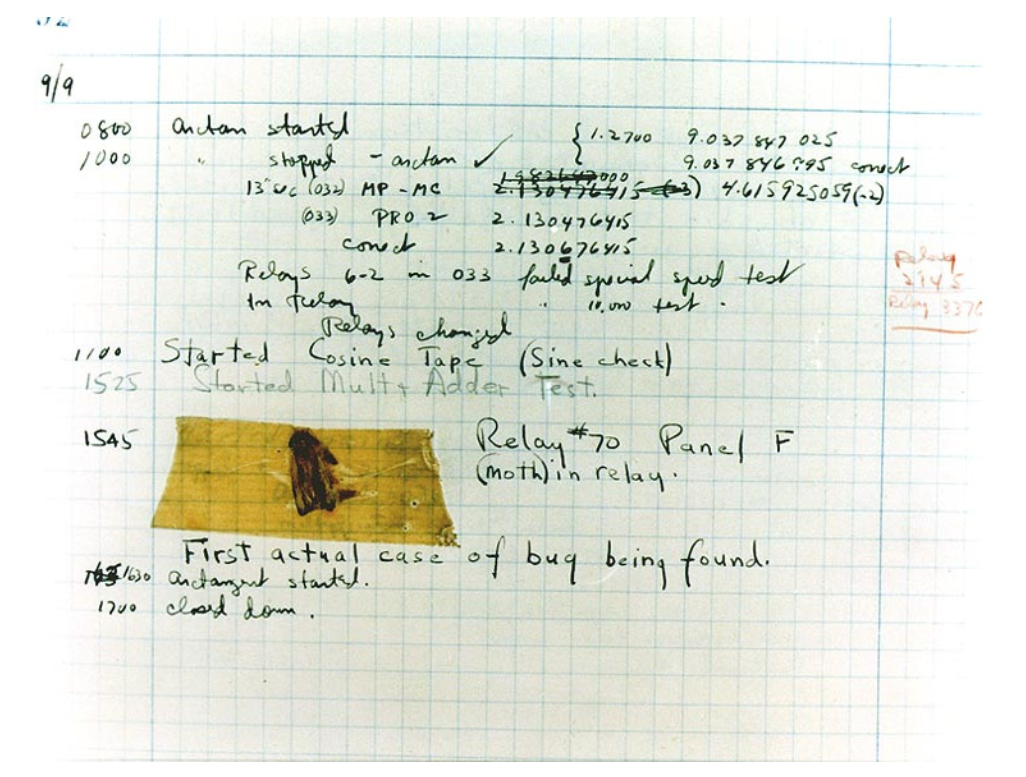 9/9
0800 arctan started { 1.2700 9.037 847 025
1000 " stopped - arctan ✓ 9.037 846 995 correct
13" sec (032) MP - MC 2.130476415 4.615925059(-2)
(033) PRO 2 2.130476415
correct 2.130676415
Relays 6-2 in 033 failed special speed test
In relay " 10,000 test .
Relays changed
Relay
2145
Relay 3370
1100 Started Cosine Tape (Sine check)
1525 Started Mult + Adder Test.
1545 Relay #70 Panel F
(moth) in relay.
First actual case of bug being found.
1630 arctangent started.
1700 closed down.